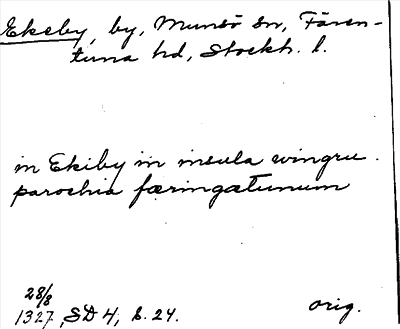 Ekeby, by, Munsö sn, Fären-
tuna hd, Stockh. l.
in Ekiby in insula wingru.
parochia færingætunum
28/8
1327, SD 4, s. 24.
orig.